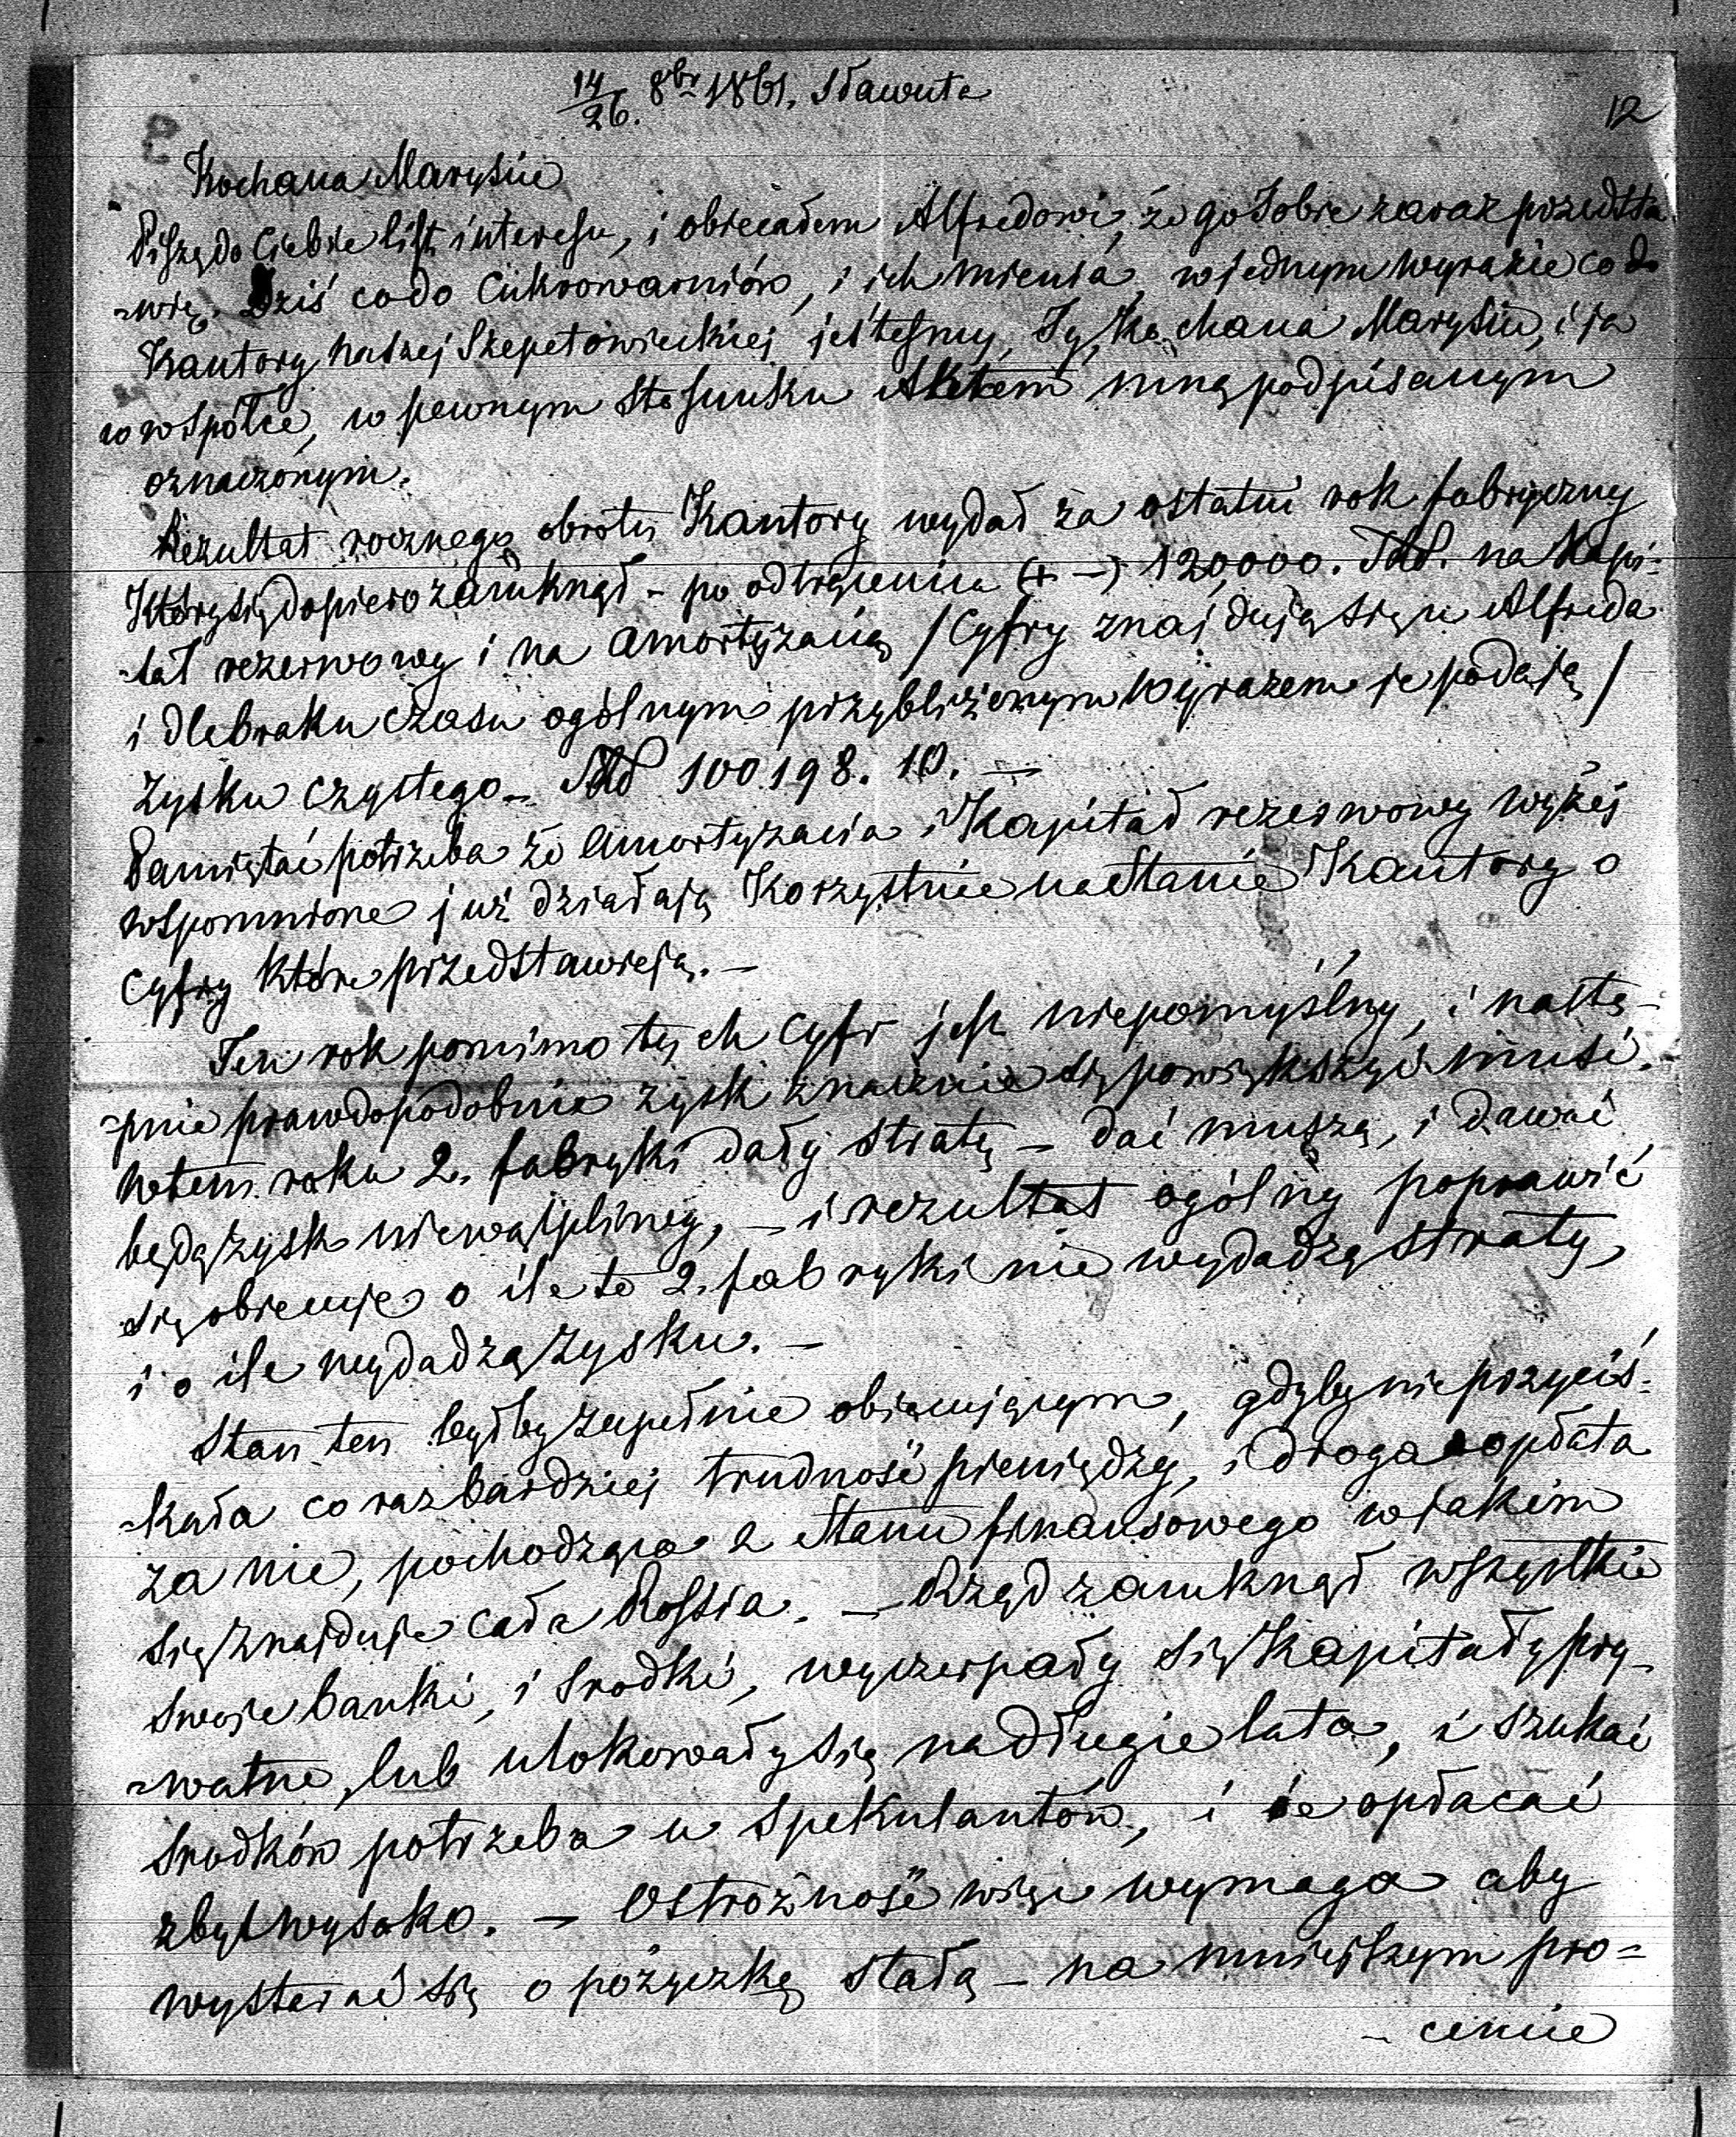 14/26. 8br 1861. Sławuta
12
Kochana Marysiu
Piszę do Ciebie list interesu, i obiecałem Alfredowi, że go Tobie zaraz przedsta
-wię. Dziś co do Cukrowarniów, i ich mienia, w jednym wyrazie co do
Kantory naszej Szepetowieckiej jesteśmy, Ty, Kochana Marysiu, i ja
w wspólce, w pewnym stosunku Aktem mną podpisanym
oznaczonym.
Rezultat rocznego obrotu Kantory wydał za ostatni rok fabryczny
Który się dopiero zamknął - po odtrąceniu (+ -) 120,000. na Kapi-
-tał rezerwowy i na amortyzacią / Cyfry znajdują się u Alfreda
i dla braku czasu ogólnym przybliżonym wyrazem je podają /
zysku czystego - 100.198. 10. —
Pamiętać potrzeba że amortyzacia i Kapitał rezerwowy wyżej
wspomnione już działają Korzystnie na Stanie Kantory o
cyfry które przedstawieją. —
Ten rok pomimo tych cyfr jest niepomyślny, i nastę-
-pnie prawdopodobnie zysk znacznie się powiększyć musi.
W tem roku 2. fabryki dały stratę — dać muszą, i dawać
będą zysk niewątpliwy, — i rezultat ogólny poprawić
się obiecuje o ile te 2. fabryki nie wydadzą straty,
i o ile wydadzą zysku. —
Stan ten byłby zupełnie obiecującym, gdyby nie przycis-
-kała co raz bardziej trudność pieniędzy, i droga opłata
za nie, pochodząca z Stanu finansowego w jakim
się znajduje cała Rossia. — Rząd zamknął wszystkie
swoje banki, i srodki, wyczerpały się Kapitały pry-
-watne, lub ulokowały się na długie lata, i szukać
srodków potrzeba u spekulantów, i je opłacać
zbyt wysoko. — Ostrożność więc wymaga aby
wystarać się o pożyczkę stałą — na mniejszym pro-
- cencie